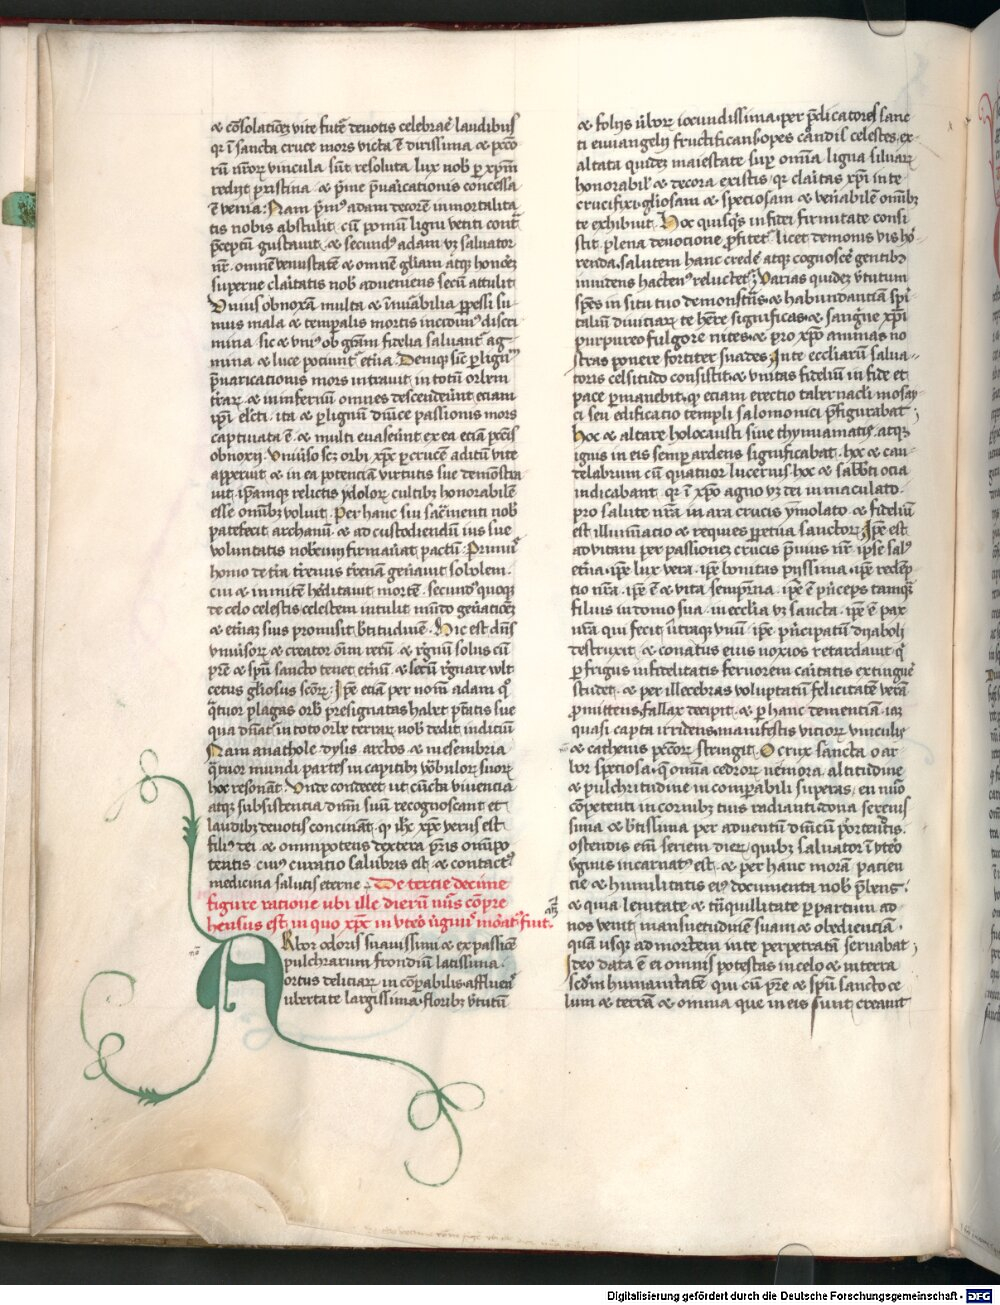 ⁊ cōsolatiōeꝫ vite futē deuotis celebrāt laudibus
qꝛ ī sancta cruce mors victa ē dirissima ⁊ pcc̄o
rū nr̄oꝝ vincula sūt resoluta lux nob̄ ꝑ xp̄m
redijt pristina ⁊ p̄me p̄uaricationis concessa
ē venia. Nam p̄mꝰ adam decorē inmortalita
tis nobis abstulit cū pomū ligni vetiti cont̄
p̄ceptū gustauit ⁊ secundꝰ adam vꝫ saluator
nr̄ omnē venustatē ⁊ omnē gl̄iam atqꝫ honorē
superne claritatis nob̄ adueniens secū attulit
Vnius obnoxā multa ⁊ īnūabilia ꝑpessi su
mus mala ⁊ temꝑalis mortis incidimꝰ discri
mina sic ⁊ vniꝰ ob grām fidelia saluant̄ ag
mina ⁊ luce pociunt̄ et̄na. Deniqꝫ sic̄ ꝑ lignū
p̄uaricationis mors intrauit in totū orbem
t̄raꝝ ⁊ in infernū omnes descenderūt eciam
ip̄i el̄cti ita ⁊ ꝑ lignum dn̄ice passionis mors
captiuata ē ⁊ multi euaserūt ex ea eciā pcc̄is
obnoxij. Vniūso scꝫ orbi xp̄c ꝑ crucē aditū vite
apperuit ⁊ in ea potenciā virtutis sue demōstra
uit ip̄amqꝫ relictis ydoloꝝ cultibꝫ honorabilē
esse om̄ibꝫ voluit. Per hanc sui sacr̄menti nob̄
patefecit archanū ⁊ ad custodiendū ius sue
voluntatis nobcum firmauat pactū. Primꝰ
homo de t̄ra t̄renus t̄renam gen̄auit sobolem
cui ⁊ inmitē hēditauit mortē. secundꝰ quoqꝫ
de celo celestis celestem intulit mūdo gen̄atiōeꝫ
⁊ et̄naꝫ suis promisit b̄titudinē. Hic est dn̄s
vniūsoꝝ ⁊ creator om̄ rerū ⁊ rēgnū solus cū
pr̄e ⁊ sp̄u sancto tenet et̄nū ⁊ secū rēgnare vult
cetus gl̄iosus scōꝝ. Ip̄e eciā per nomē adam qꝰ
q̄tuor plagas orb̄ presignatas habet pt̄atis sue
qua dn̄at̄ in toto orbe terraꝝ nob̄ dedit indiciū
Nam anathole dysis arctos ⁊ mesembria
q̄tuor mundi partes in capitibꝫ vōbuloꝝ suoꝝ
hoc resonāt. Vnde condecet ut cūcta viuencia
atqꝫ subsistencia dn̄m suū recognoscant et
laudibꝫ deuotis concināt qꝙ ih̄c xp̄c verus est
filiꝰ dei ⁊ omnipotens dextera pr̄is om̄ipo
tentis cuiꝰ curatio salubris est ⁊ contactꝰ
medicina salutis eterne. De tercie decime
figure ratione vbi ille dierū nūs cōpre
hensus est in quo xp̄c in vtero v̄gīnis morat̄ꝰ fuit.
Arbor odoris suauissimi ⁊ expassiōe
pulchrarum frondiū latissima
ortus deliciaꝝ in cōꝑabilis affluens
ubertate largissima floribꝫ v̄tutū
⁊ folijs ūboꝝ iocundissima per p̄dicatores sanc
ti euuangelij fructificans opes cādis celestes ex
altata quidez maiestate suꝑ om̄ia ligna siluaꝝ
honorabil̄ ⁊ decora existis qꝛ claritas xp̄i in te
crucifixi gliosam ⁊ speciosam ⁊ ven̄abilē om̄ibꝫ
te exhibuit. Hoc quisqꝫs in fidei firmitate consi
stit plena deuocione ꝓfitet̄ licet demonis vis ho
renda salutem hanc credē atqꝫ cognoscē gentibꝫ
inuidens hactenꝰ reluctet̄. Varias quidez v̄tutum
spēs in situ tuo demonstras ⁊ habundanciā sp̄i
taliū diuiciaꝝ te hēre significas ⁊ sangr̄e xp̄i
purpureo fulgore nites ⁊ pro xp̄o animas no
stras ponere fortiter suades. In te eccliarū salua
toris celsitudo consistit ⁊ vnitas fideliū in fide et
pace ꝑmanebit qꝙ eciam erectio tabernacli mosay
ci seu edificatio templi salomonici p̄figurabat
Hoc ⁊ altare holocausti siue thymiamatis atqꝫ
ignis in eis semꝑ ardens significabat. hoc ⁊ can
delabrum cū quatuor lucernis hoc ⁊ sabb̄ti ocia
indicabant qꝛ ī xp̄o agno vꝫ dei inmaculato
pro salute nr̄a in ara crucis ymolato ⁊ fideliū
est illuminacio ⁊ requies ꝑpetua sanctoꝝ. Ip̄e est
ad vitam per passionez crucis p̄mius nr̄ ipse salꝰ
et̄na ip̄e lux vera ip̄e bonitas pijssima ip̄e redēp
tio nr̄a ip̄e ē ⁊ vita sempit̄na ip̄e ē p̄nceps tamqꝫ
filius in domo sua in ecclia vꝫ sancta ip̄e ē pax
nr̄a qui fecit ūtraqꝫ vnū ip̄e p̄ncipatū dyaboli
destruxit ⁊ conatus eius noxios retardauit qꝰ
ꝑ frigus infidelitatis feruorem caritatis extinguē
studet ⁊ per illecebras voluptatū felicitatē verā
ꝓmittens fallax decipit ⁊ ꝑ hanc dementiā iaꝫ
quasi capta irridens manifestis vicioꝝ vinculis
⁊ cathenis pccōꝝ stringit. O crux sancta o ar
bor speciosa qꝫ om̄ia cedroꝝ nemora altitudine
⁊ pulchritudine in comꝑabili superas en nūo
cōpetenti in cornibꝫ tuis radianti dona serenis
sima ⁊ b̄tissima per aduentū dn̄icū portentas
ostendis em̄ seriem dieꝝ quibꝫ saluator ī vtero
v̄ginis incarnatꝰ est ⁊ per hanc morā pacien
cie ⁊ humilitatis eiꝰ documenta nob̄ p̄bens
⁊ quia lenitate ⁊ tr̄quillitate ꝑ partum ad
nos venit mansuetudinē suam ⁊ obedienciā
quā usqꝫ ad mortem in te perpetratā seruabat
Ideo data ē ei omnis potestas in celo ⁊ in terra
scdm̄ humanitatē qui cū pr̄e ⁊ sp̄u sancto ce
lum ⁊ terrā ⁊ omnia que in eis sunt creauit
Digitalisierung gefördert durch die Deutsche Forschungsgemeinschaft - DFG